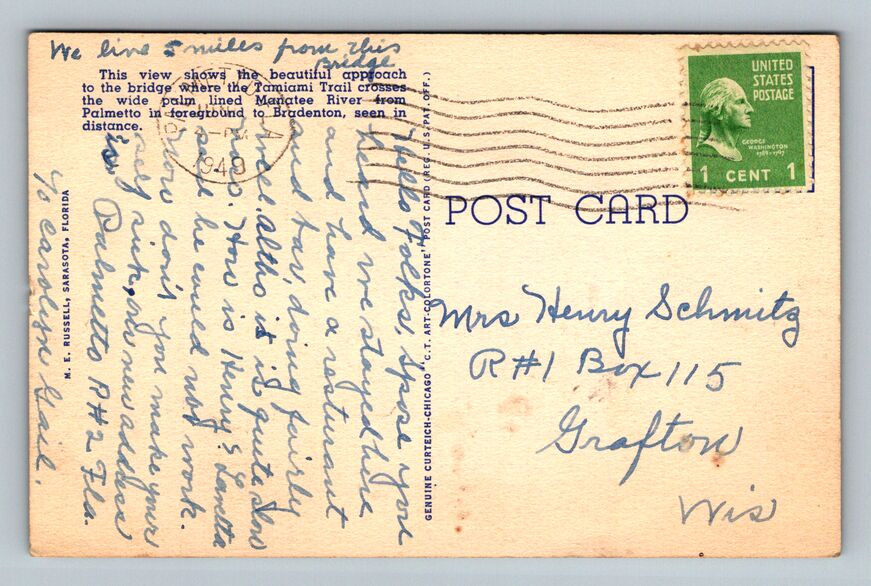 We live 5 miles from this
Bridge
This view shows the beautiful approach
to the bridge where the Tamiami Trail crosses
the wide palm lined Manatee River from
Palmetto in foreground to Bradenton, seen in
distance.
Hello Folks, Spose you
heard we stayed here
and have a resturant
and bar, doing fairly
well. altho it is quite slow
now. How is Henry? Loretta
said he could not work.
Now don't you make your
self sick, our new address
is Palmetto R#2 Fla.
To Carolyn Gail.
M. E. RUSSELL, SARASOTA, FLORIDA
GENUINE CURTEICH-CHICAGO "C.T. ART-COLORTONE" POST CARD (REG. U. S. PAT. OFF.)
1949
UNITED
STATES
POSTAGE
GEORGE
WASHINGTON
1789-1797
1 CENT 1
POST CARD
Mrs Henry Schmitz
R#1 Box 115
Grafton
Wis